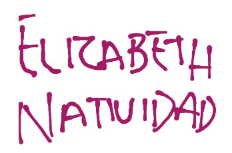 ELIZABETH
NATIVIDAD